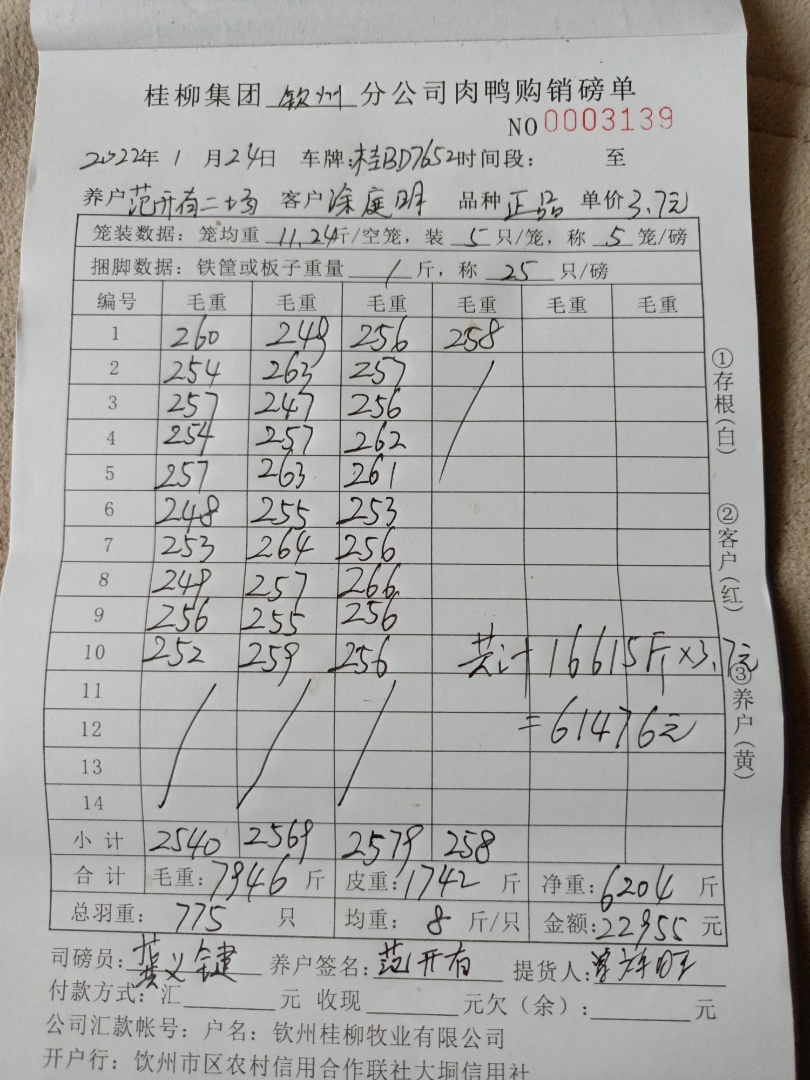 桂柳集团 钦州 分公司肉鸭购销磅单
NO 0003139
2022年 1 月 24日 车牌:桂BD7652 时间段: 至
养户 范开有二场 客户 涂庭明 品种 正品 单价 3.7元
笼装数据: 笼均重 11.24斤/空笼, 装 5 只/笼, 称 5 笼/磅
捆脚数据: 铁筐或板子重量 1 斤, 称 25 只/磅
编号 毛重 毛重 毛重 毛重 毛重 毛重
1 260 249 256 258
2 254 263 257
3 257 247 256
4 254 257 262
5 257 263 261
6 248 255 253
7 253 264 256
8 249 257 266
9 256 255 256
10 252 259 256 共计 16615斤×3.7元
11
12 =61476元
13
14
小计 2540 2569 2579 258
合计 毛重: 7946 斤 皮重: 1742 斤 净重: 6204 斤
总羽重: 775 只 均重: 8 斤/只 金额: 22955 元
司磅员: 龚义健 养户签名: 范开有 提货人:
付款方式: 汇 元 收现 元欠(余): 元
公司汇款帐号: 户名: 钦州桂柳牧业有限公司
开户行: 钦州市区农村信用合作联社大垌信用社
①存根(白)
②客户(红)
③养户(黄)